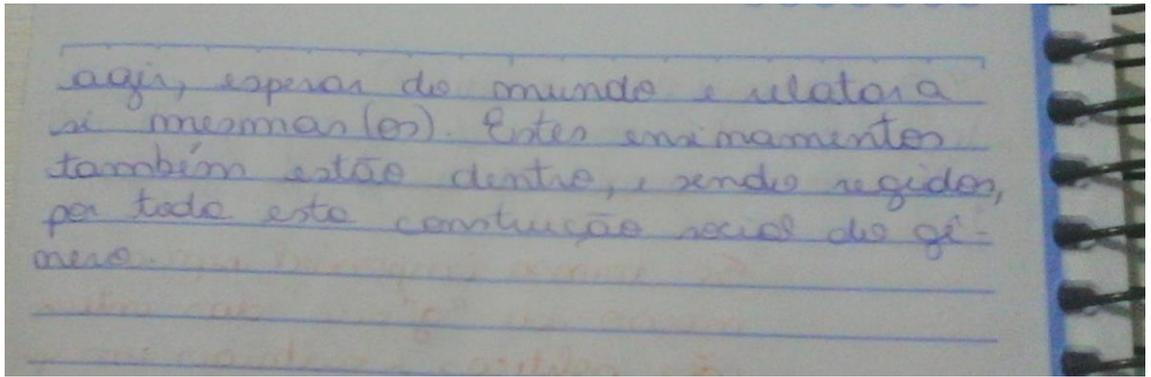 agir, esperar do mundo e relatar a
si mesmas(os). Estes ensinamentos
também estão dentro, e sendo regidos,
por toda esta construção social do gê-
nero.